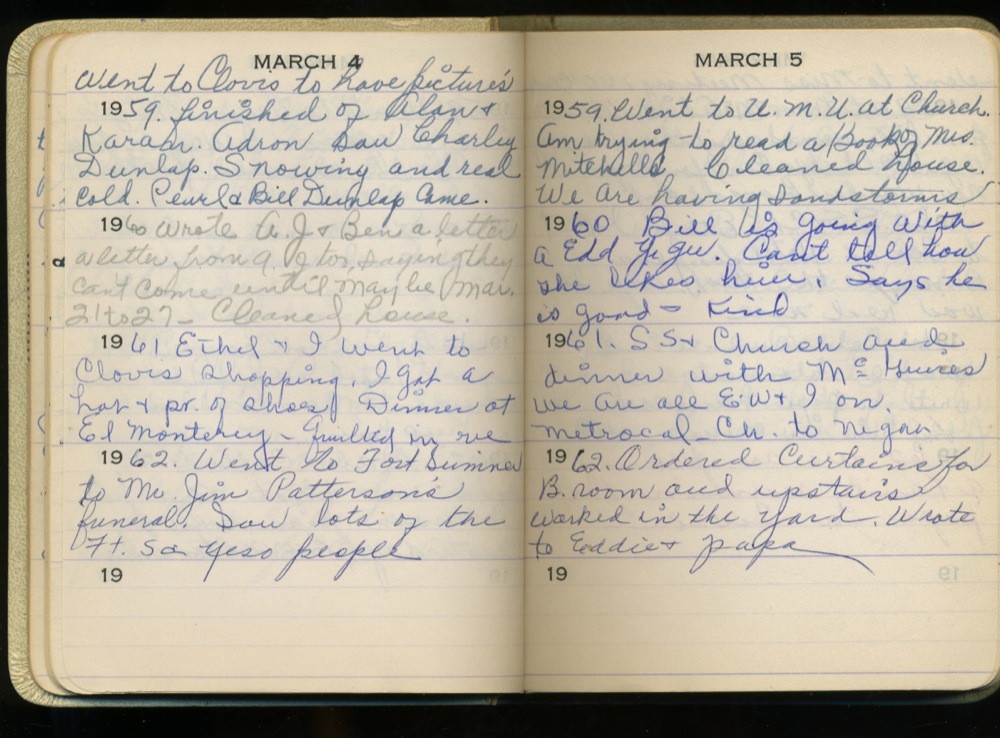 MARCH 4
Went to Clovis to have pictures
1959. finished of Alan &
Karan. Adron saw Charley
Dunlap. Snowing and real
cold. Pearl & Bill Dunlap Came.
1960 Wrote A.J & Ben a letter
a letter from A. J to, saying they
can't come until maybe Mar.
21 to 27 - Cleaned house.
1961 Ethel & I went to
Clovis shopping. I got a
hat & pr. of shoes. Dinner at
El Monterey - Quilted in
1962. Went to Fort Sumner
to Mr. Jim Patterson's
funeral. Saw lots of the
Ft. S & Yeso people
19
MARCH 5
1959. Went to U. M. U. at Church.
Am trying to read a Book of Mrs.
Mitchells Cleaned House.
We Are having Sandstorms
1960 Bill is going with
a Edd. Can't tell how
she likes him. Says he
is good - Kind
1961. S S & Church and
dinner with
we are all E.W & I on.
metrocal - Ch. to
1962. Ordered Curtains for
B. room and upstairs
worked in the yard. Wrote
to Eddie & papa
19